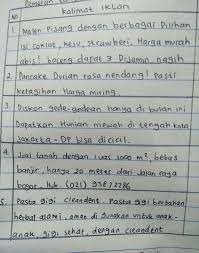 No. kalimat Iklan
1. Molen Pisang dengan berbagai Pilihan
isi coklat, keju, strawberi, Harga murah
abis! boceng dapat 3 Dijamin nagih
2. Pancake Durian rasa nendang! Pasti
ketagihan Harga miring.
3. Diskon gede-gedean hanya di bulan ini
Dapatkan Hunian mewah di tengah kota
Jakarta - DP bisa dicicil.
4. Jual tanah dengan luas 1000 m², bebas
banjir, hanya 20 meter dari jalan raya
bogor, hub (021) 93872786
5. Pasta gigi cleandent. Pasta gigi berbahan
herbal alami, aman di gunakan untuk anak-
anak, gigi sehat, dengan cleandent